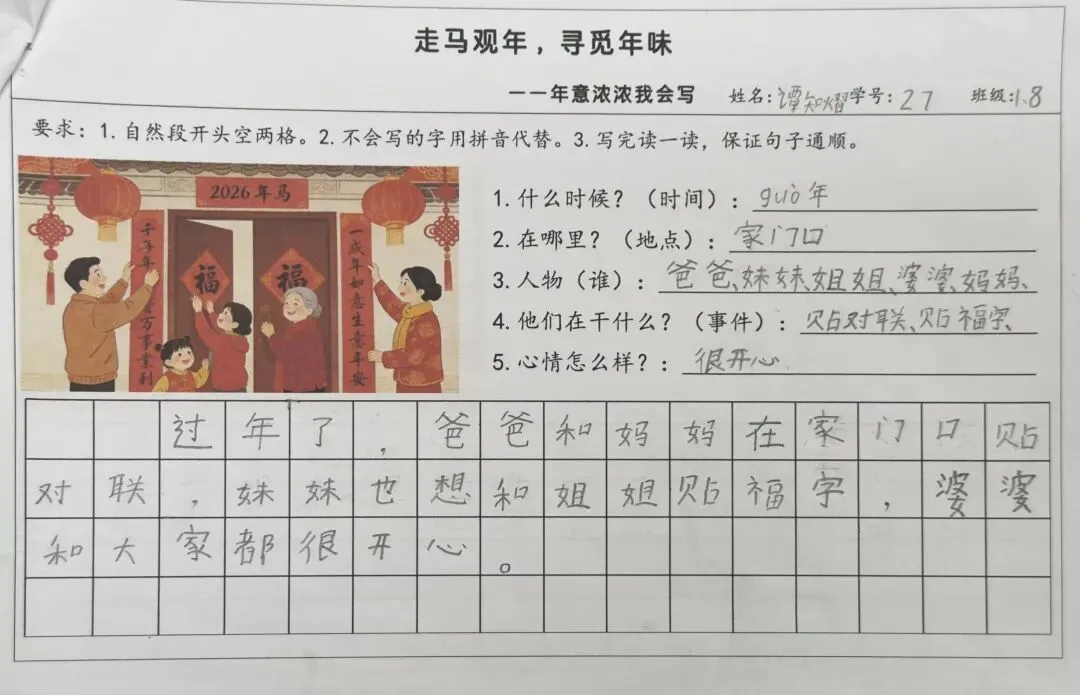 走马观年，寻觅年味
——年意浓浓我会写 姓名：谭知熠 学号：27 班级：1.8
要求：1.自然段开头空两格。2.不会写的字用拼音代替。3.写完读一读，保证句子通顺。
2026年马
一成年如意生意年安
福 福
1.什么时候？（时间）：guò年
2.在哪里？（地点）：家门口
3.人物（谁）：爸爸、妹妹、姐姐、婆婆、妈妈、
4.他们在干什么？（事件）：贴对联、贴福字、
5.心情怎么样？：很开心
过年了，爸爸和妈妈在家门口贴
对联，妹妹也想和姐姐贴福字，婆婆
和大家都很开心。